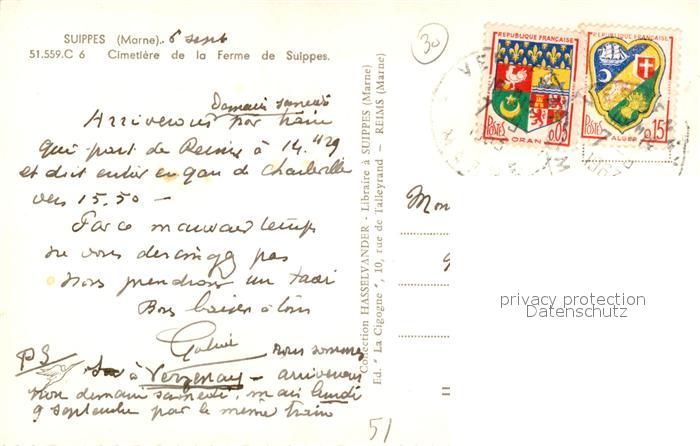 SUIPPES (Marne). 6 sept
51.559.C 6 Cimetière de la Ferme de Suippes.
30
Demain samedi
Arriverons par train
qui part de Reims à 14 H 29
et doit entrer en gare de Charleville
vers 15.50 —
Par ce mauvais temps
ne vous dérangez pas
Nous prendrons un taxi
Bons baisers à tous
PS nous sommes
à Verzenay — arriverons
non demain samedi, mais lundi
9 septembre par le même train
51
Collection HASSELVANDER - Libraire à SUIPPES (Marne)
Ed. "La Cigogne", 10, rue de Talleyrand — REIMS (Marne)
REPUBLIQUE FRANÇAISE
POSTES 0,05
ORAN
REPUBLIQUE FRANÇAISE
POSTES 0,15
ALGER
Mon
privacy protection
Datenschutz